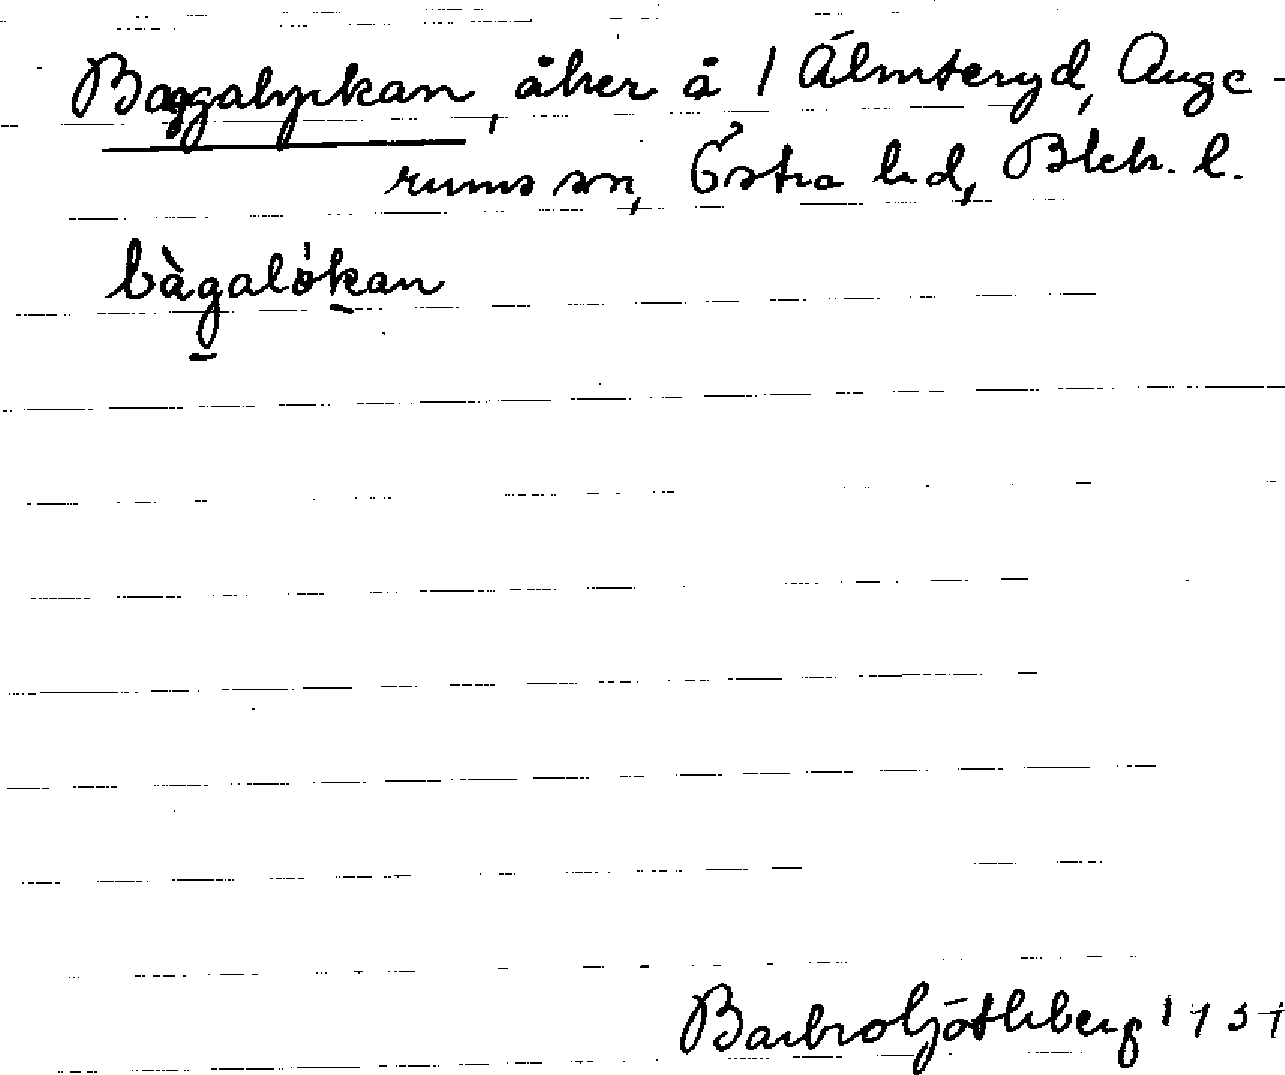 Baggalyckan, åker å 1 Älmteryd, Auge-
rums sn, Östra hd, Blek. l.
bàgalökan
Barbro Göthberg 1939